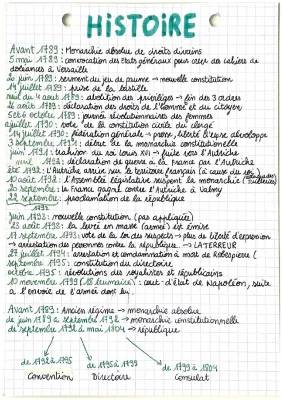 HISTOIRE
Avant 1789 : Monarchie absolue de droits divins
5 mai 1789 : convocation des Etats généraux pour créer des cahiers de
doléances à Versaille
20 juin 1789 : serment du jeu de paume → nouvelle constitution
14 juillet 1789 : prise de la bastille
nuit du 4 août 1789 : abolition des privilèges → fin des 3 ordres
26 août 1789 : déclaration des droits de l'homme et du citoyens
5 et 6 octobre 1789 : journée révolutionnaires des femmes
2 juillet 1790 : vote de la constitution civil du clergé
14 juillet 1790 : fédération générale → presse, liberté d'expr. développe
3 septembre 1791 : début de la monarchie constitutionnelle
juin 1791 : trahison du roi Louis XVI → fuite vers l'Autriche
avril 1792 : déclaration de guerre à la France par l'Autriche
été 1792 : l'Autriche arrive sur le territoire français (à cause du roi
10 août 1792 : l'Assemblée législative suspent la monarchie (Tuileries)
20 septembre : la France gagne contre l'Autriche à Valmy
22 septembre : proclamation de la république
1793
juin 1793 : nouvelle constitution (pas appliquée)
23 août 1793 : la levée en masse (armée) est émise
17 septembre 1793 : vote de la loi des suspects → plus de liberté d'expression
→ arrestation des personnes contre la république. → LA TERREUR
27 juillet 1794 : arrestation et condamnation à mort de Robespierre
septembre 1795 : constitution du directoire
octobre 1795 : révolutions des royalistes et républicains
10 novembre 1799 (18 brumaire) : coup d'état de Napoléon, suite
à l'envoie de l'armée dont lui
Avant 1789 : Ancien régime → monarchie absolue
de juin 1789 à septembre 1792 → monarchie constitutionnelle
de septembre 1792 à mai 1804 → république
de 1792 à 1795
de 1795 à 1799
de 1799 à 1804
Convention
Directoire
Consulat